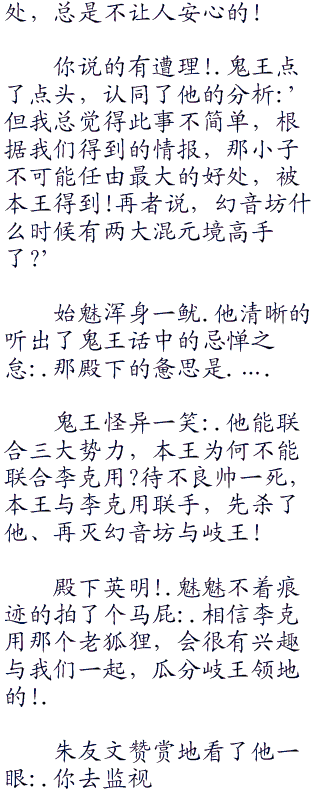 处，总是不让人安心的!
你说的有遭理!.鬼王点
了点头，认同了他的分析:’
但我总觉得此事不简单，根
据我们得到的情报，那小子
不可能任由最大的好处，被
本王得到!再者说，幻音坊什
么时候有两大混元境高手
了?’
始魅浑身一鱿.他清晰的
听出了鬼王话中的忌惮之
怠:.那殿下的惫思是.….
鬼王怪异一笑:.他能联
合三大势力，本王为何不能
联合李克用?待不良帅一死，
本王与李克用联手，先杀了
他、再灭幻音坊与岐王!
殿下英明!.魅魅不着痕
迹的拍了个马屁:.相信李克
用那个老狐狸，会很有兴趣
与我们一起，瓜分岐王领地
的!.
朱友文赞赏地看了他一
眼:.你去监视